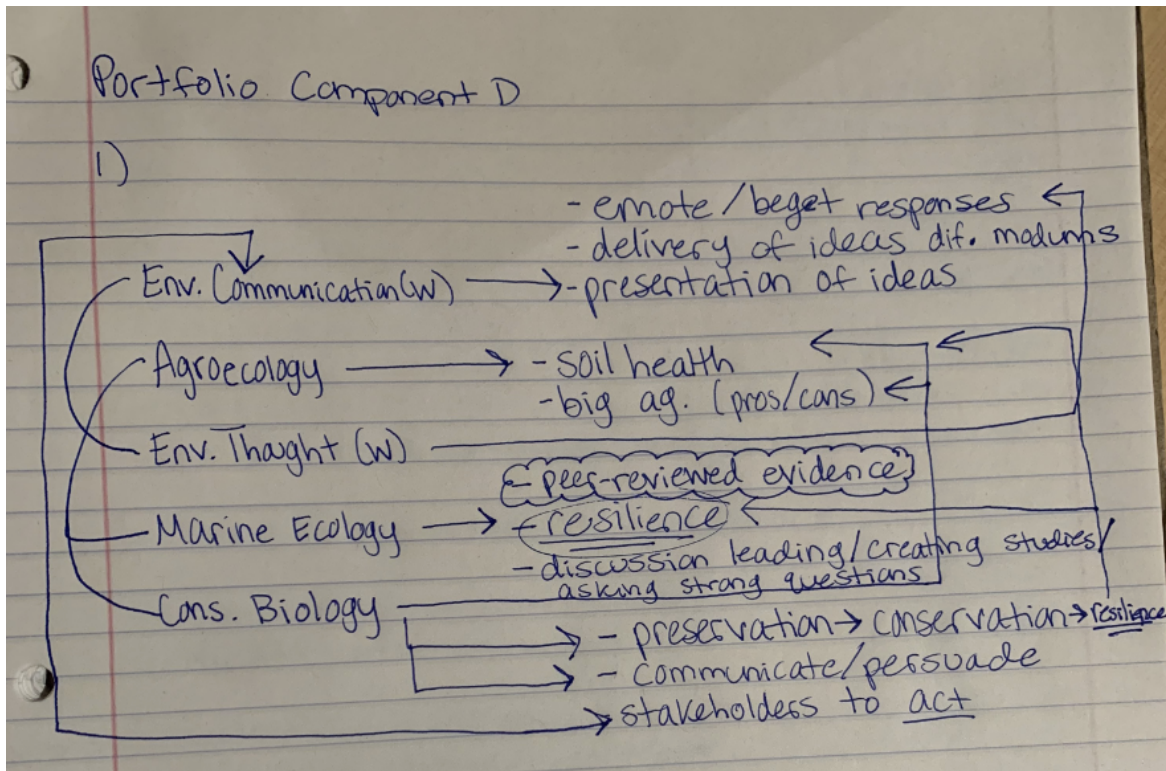 Portfolio Component D
1)
- emote/beget responses
- delivery of ideas dif. modums
Env. Communication (W) - presentation of ideas
Agroecology - soil health
- big ag. (pros/cons)
Env. Thought (W)
- peer-reviewed evidence
Marine Ecology - resilience
- discussion leading/creating studies/
asking strong questions
Cons. Biology
- preservation → conservation → resilience
- communicate/persuade
stakeholders to act